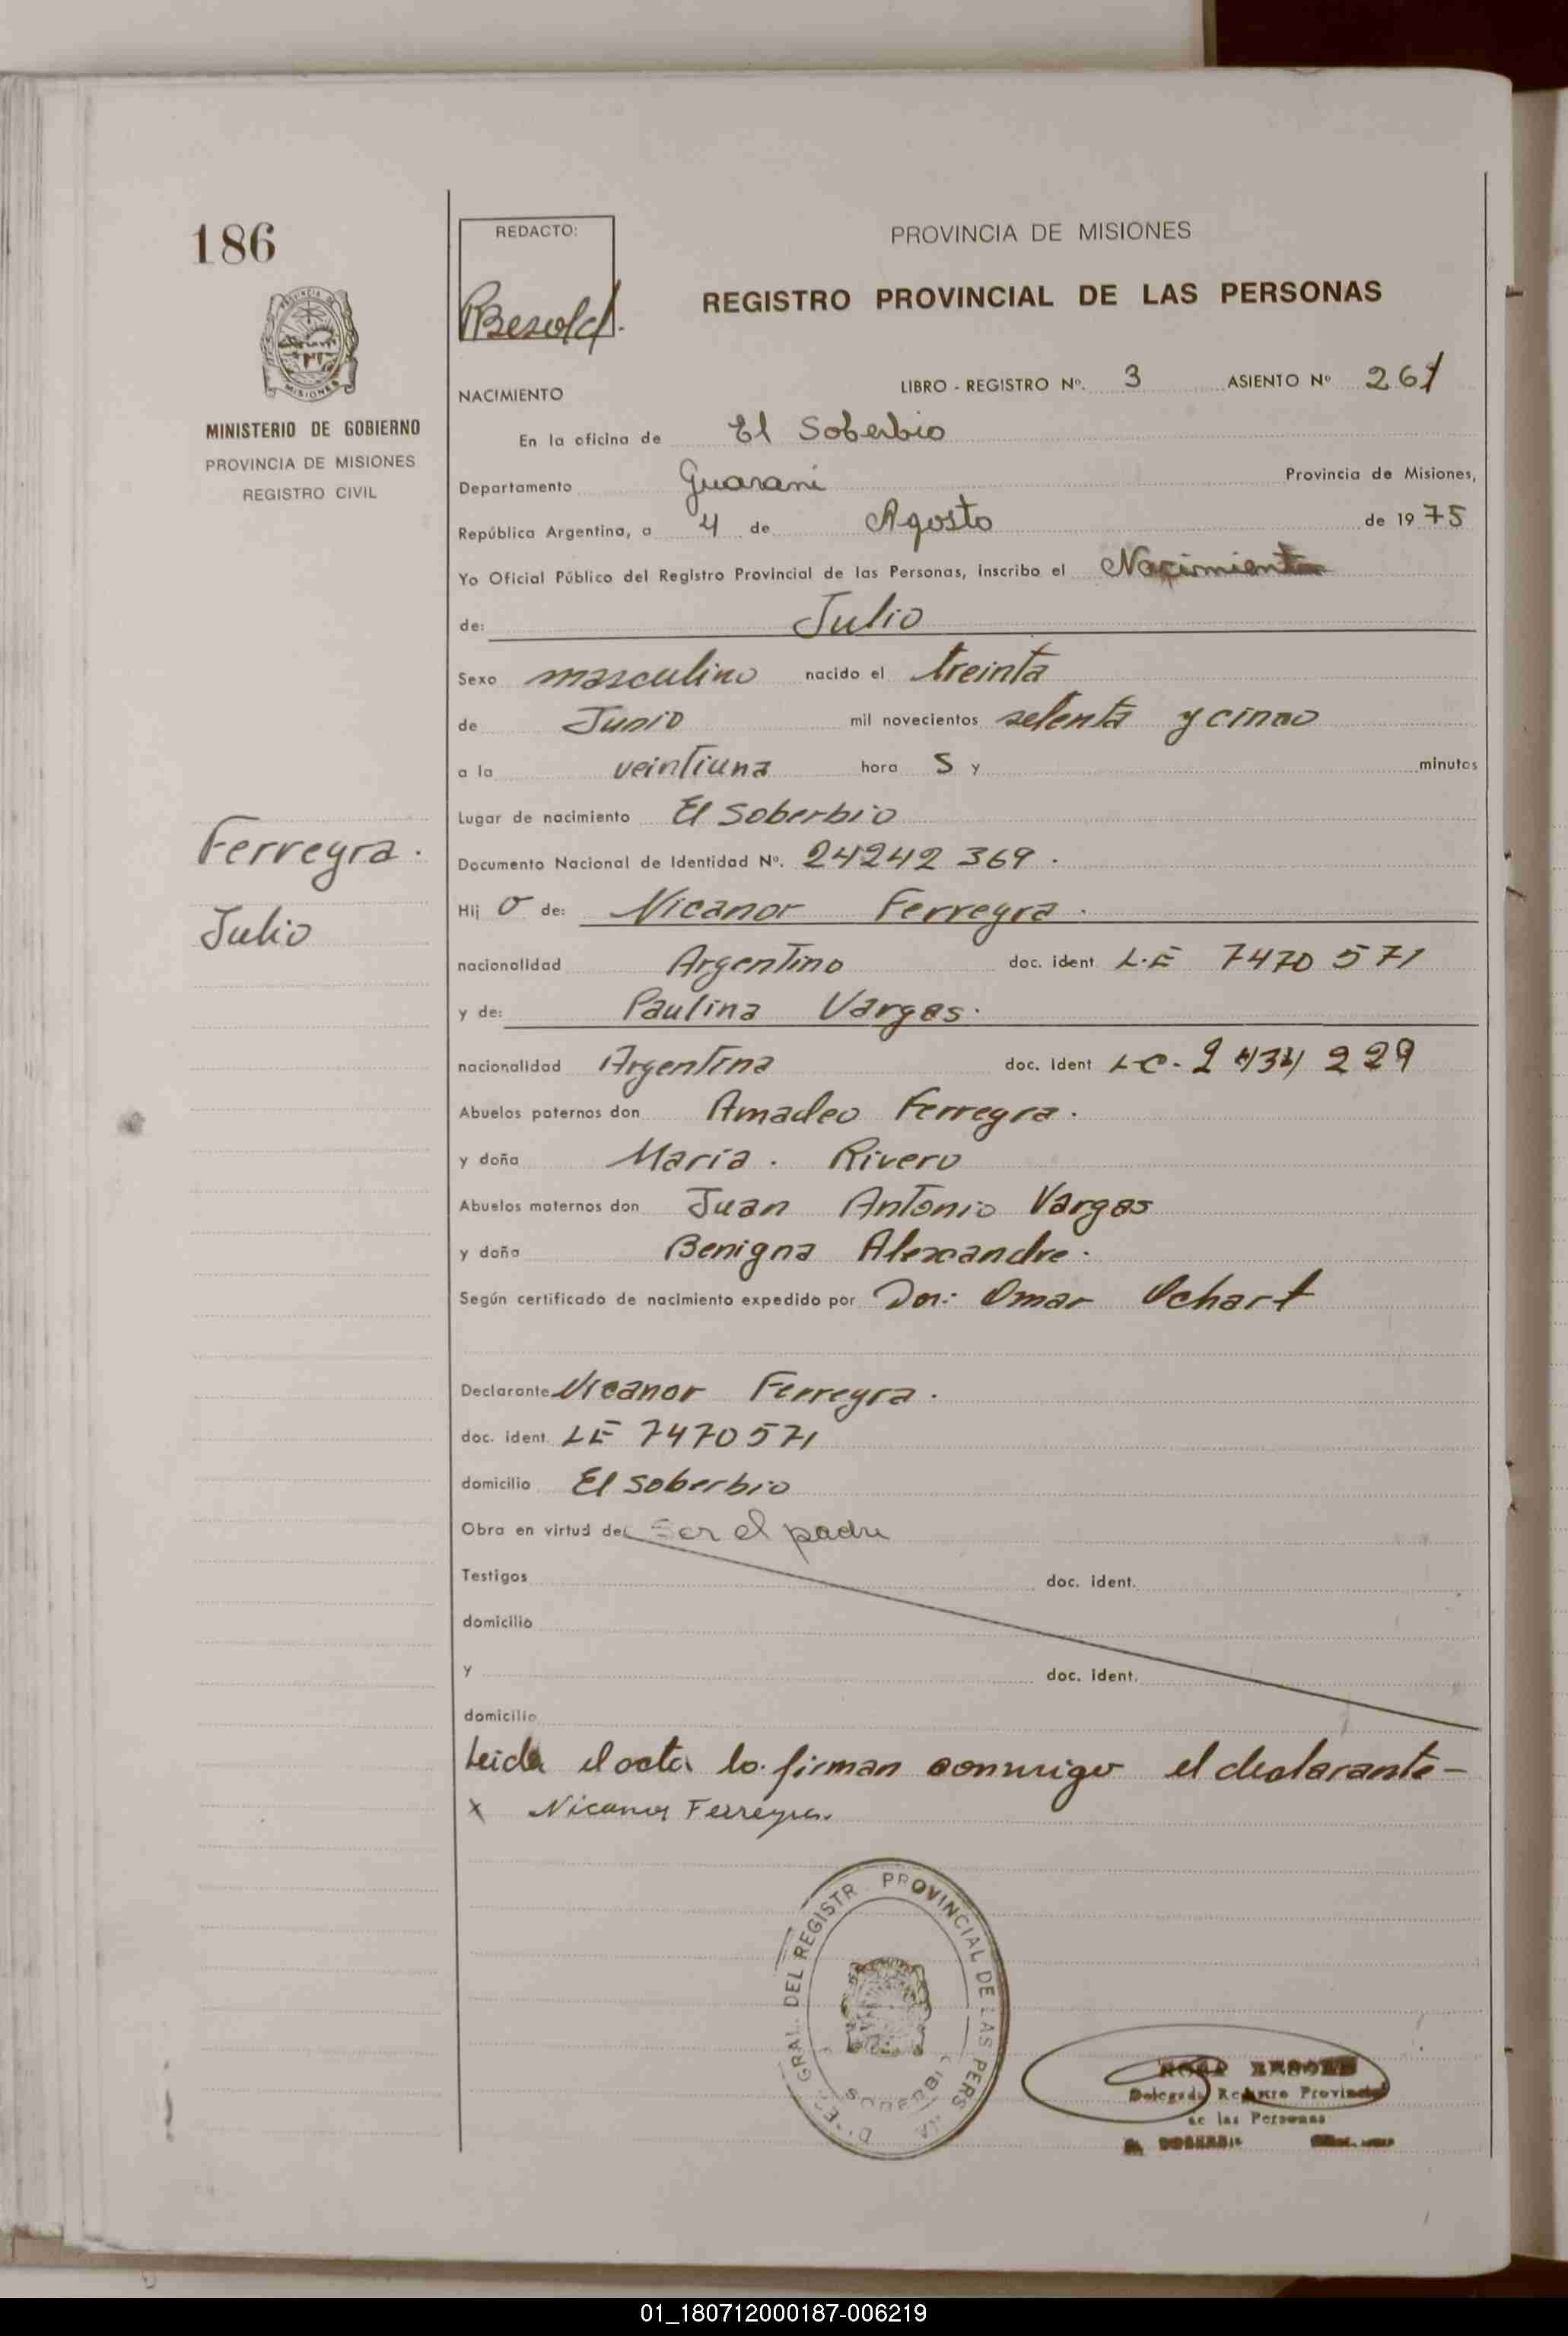 186
REDACTO:
PROVINCIA DE MISIONES
Besold.
REGISTRO PROVINCIAL DE LAS PERSONAS
MISIONES
MINISTERIO DE GOBIERNO
PROVINCIA DE MISIONES
REGISTRO CIVIL
NACIMIENTO LIBRO - REGISTRO Nº. 3 ASIENTO Nº 261
En la oficina de El Soberbio
Departamento Guarani Provincia de Misiones,
República Argentina, a 4 de Agosto de 1975
Yo Oficial Público del Registro Provincial de las Personas, inscribo el Nacimiento
de: Julio
Sexo masculino nacido el treinta
de Junio mil novecientos setenta y cinco
a la veintiuna hora s y minutos
Lugar de nacimiento El Soberbio
Ferreyra.
Julio
Documento Nacional de Identidad Nº. 24242 369.
Hij o de: Nicanor Ferreyra.
nacionalidad Argentino doc. ident L.E 7470 571
y de: Paulina Vargas.
nacionalidad Argentina doc. ident L-C. 2 434 229
Abuelos paternos don Amadeo Ferreyra.
y doña María. Rivero
Abuelos maternos don Juan Antonio Vargas
y doña Benigna Alexandre.
Según certificado de nacimiento expedido por Dor: Omar Ochart
Declarante Nicanor Ferreyra.
doc. ident. LE 7470571
domicilio El Soberbio
Obra en virtud de: Ser el padre
Testigos doc. ident.
domicilio
y doc. ident.
domicilio
Leida el acta lo firman conmigo el declarante-
x Nicanor Ferreyra.
GRAL. DEL REGISTR PROVINCIAL DE LAS PERS
SOBERBI
Delegada Registro Provincial
de las Personas
01_180712000187-006219